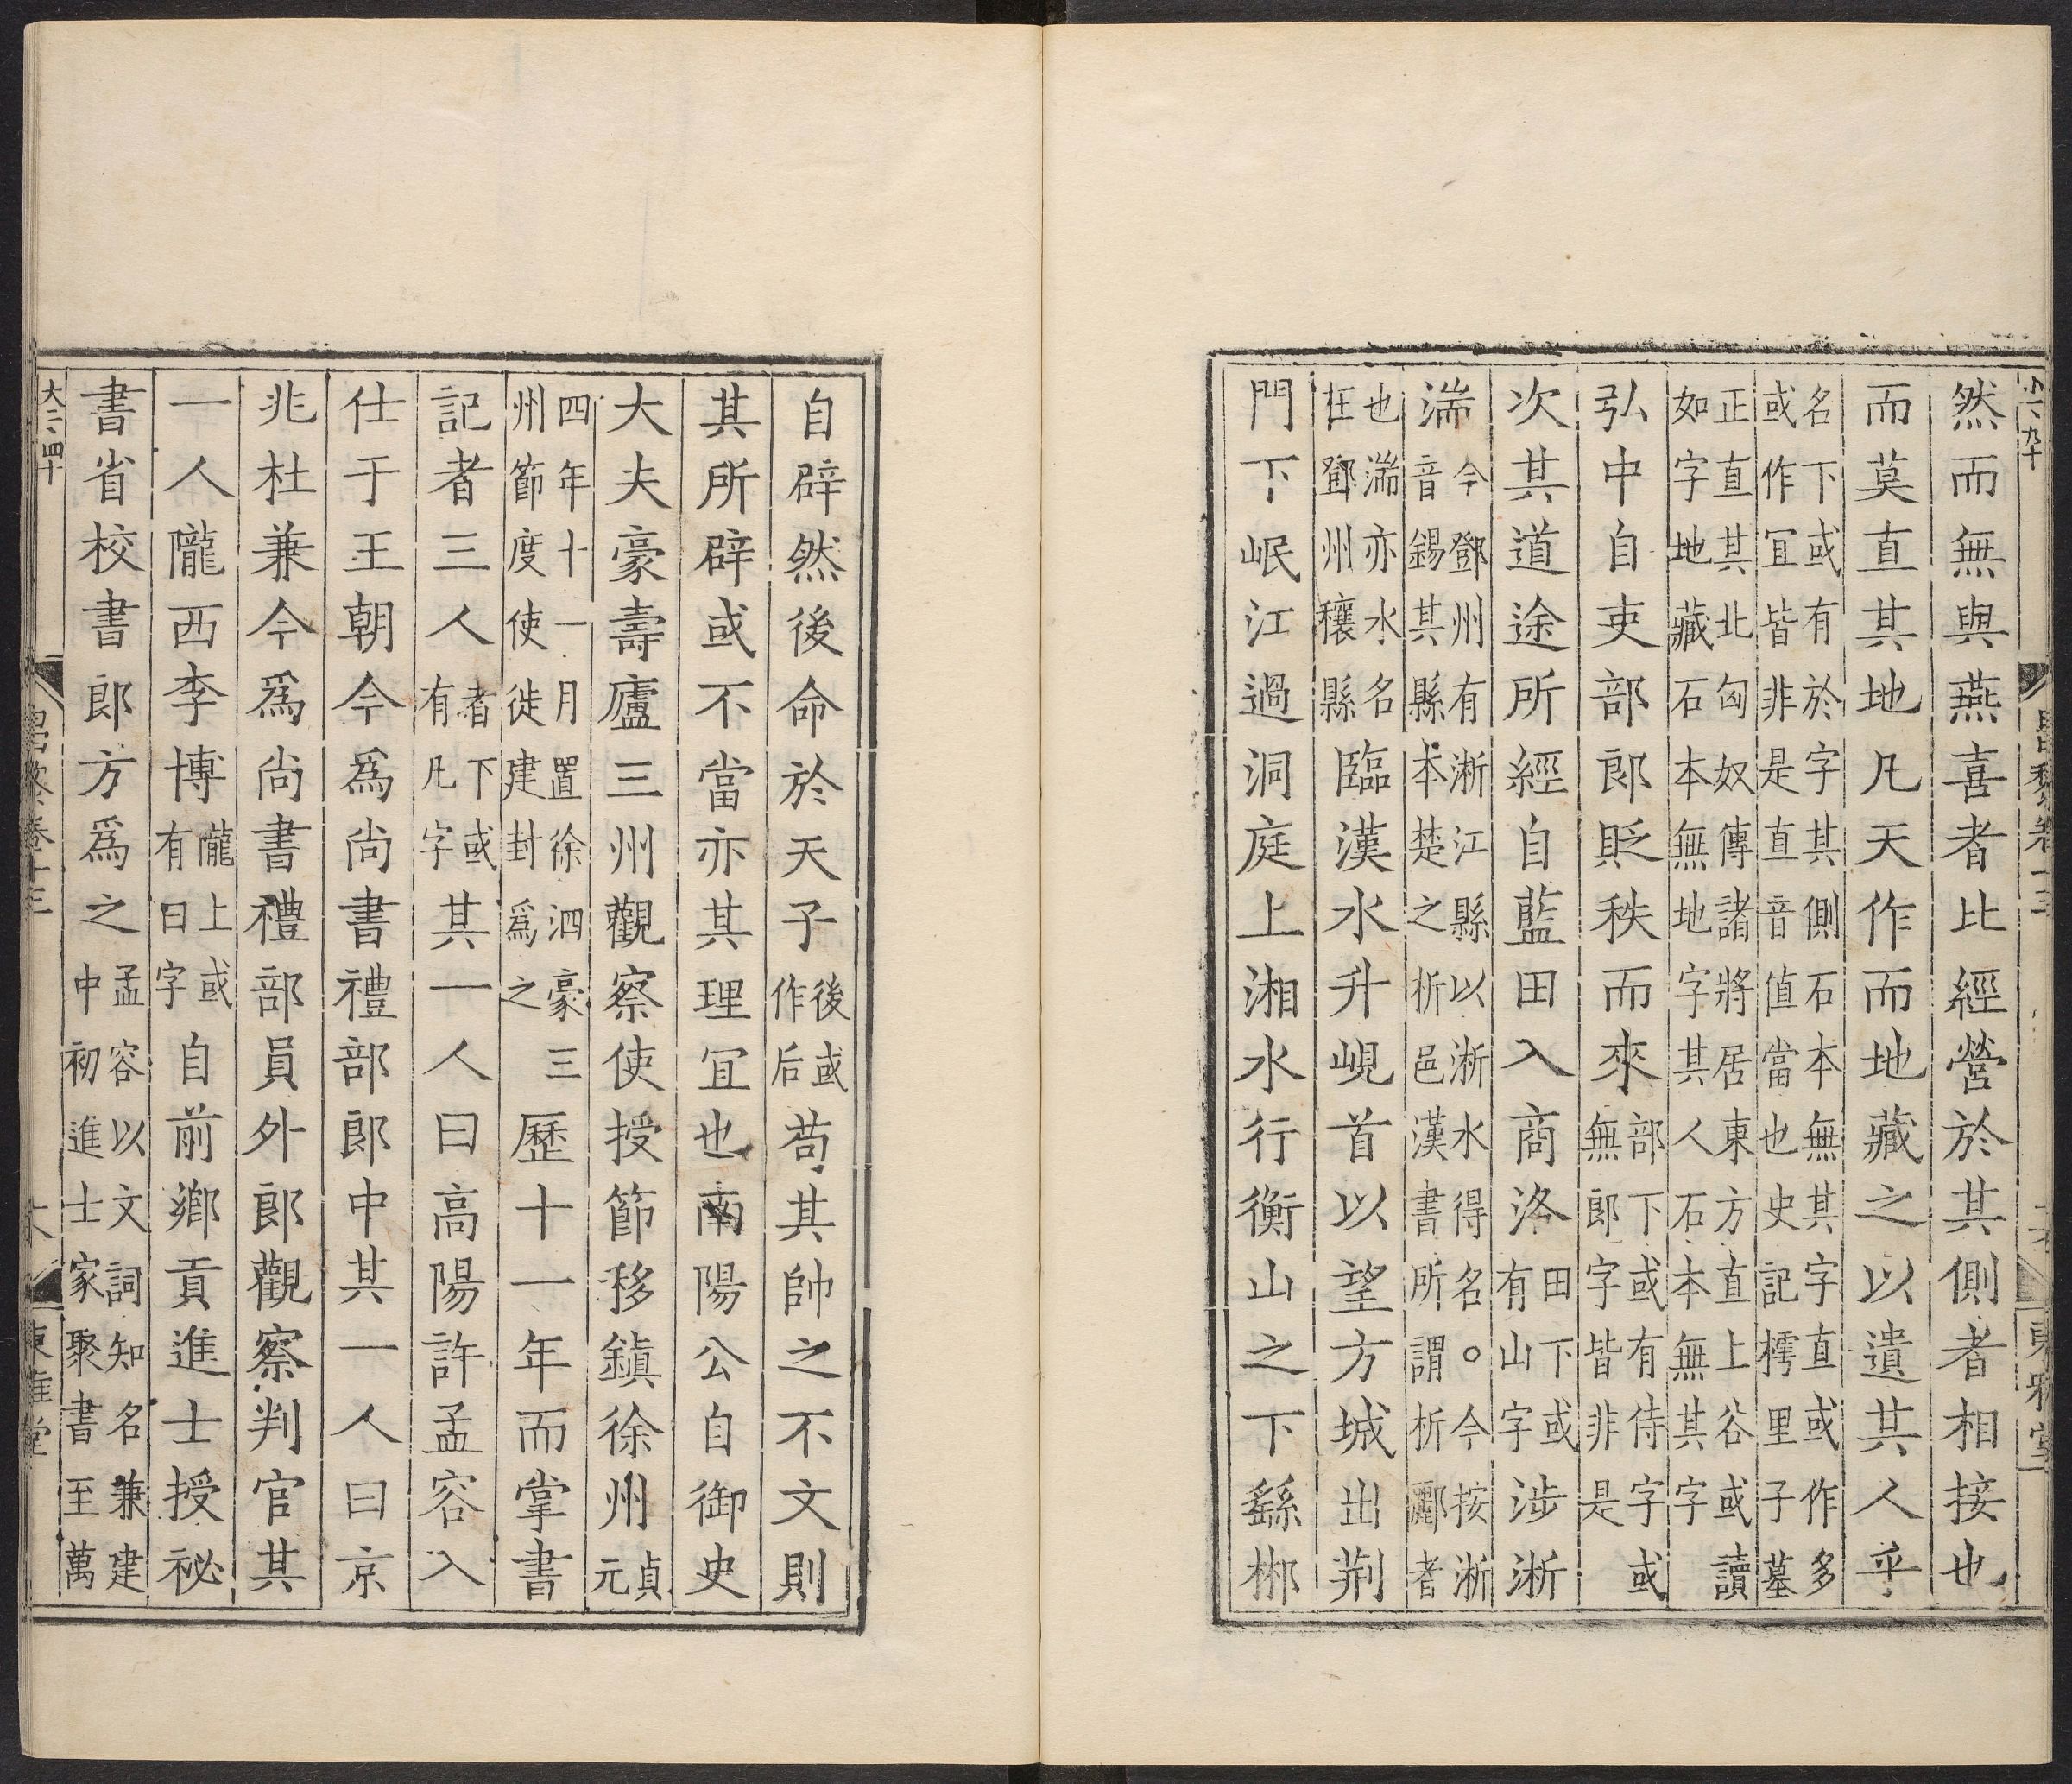 昌黎卷十三
東雅堂
然而無與燕喜者比經營於其側者相接也
而莫直其地凡天作而地藏之以遺其人乎
名下或有於字其側石本無其字直或作多
或作冝皆非是直音值當也史記樗里子墓
正直其北匈奴傳諸將居東方直上谷或讀
如字地藏石本無地字其人石本無其字
弘中自吏部郎貶秩而來部下或有侍字或無郎字皆非是
次其道途所經自藍田入商洛田下或有山字涉淅
湍今鄧州有淅江縣以淅水得名。今按淅音錫其縣本楚之析邑漢書所謂析酈者
也湍亦水名在鄧州穰縣臨漢水升峴首以望方城出荆
門下岷江過洞庭上湘水行衡山之下繇郴
自辟然後命於天子後或作后苟其帥之不文則
其所辟或不當亦其理冝也南陽公自御史
大夫豪壽廬三州觀察使授節移鎮徐州貞元
四年十一月置徐泗豪三州節度使徙建封爲之歷十一年而掌書
記者三人者下或有凡字其一人曰高陽許孟容入
仕于王朝今爲尚書禮部郎中其一人曰京
兆杜兼今爲尚書禮部員外郎觀察判官其
一人隴西李博隴上或有曰字自前鄉貢進士授祕
書省校書郎方爲之孟容以文詞知名兼建中初進士家聚書至萬
昌黎卷十三
東雅堂